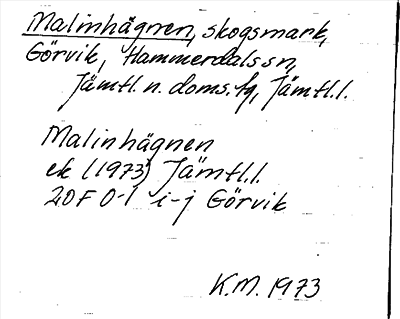 Malinhägnen, skogsmark,
Görvik, Hammerdals sn,
Jämtl. n. doms. fg, Jämtl. l.
Malinhägnen
ek (1973) Jämtl. l.
20F 0-1 i-j Görvik
K.M. 1973